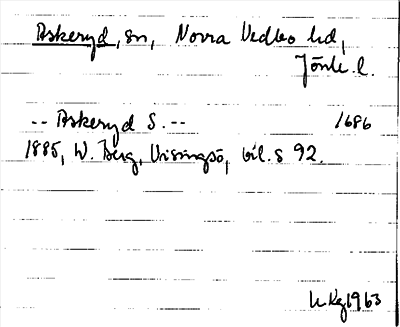 Askeryd, sn, Norra Vedbo hd,
Jönk. l.
-- Askeryd S. -- 1686
1885, W. Berg, Visingsö, bil. s 92.
1963